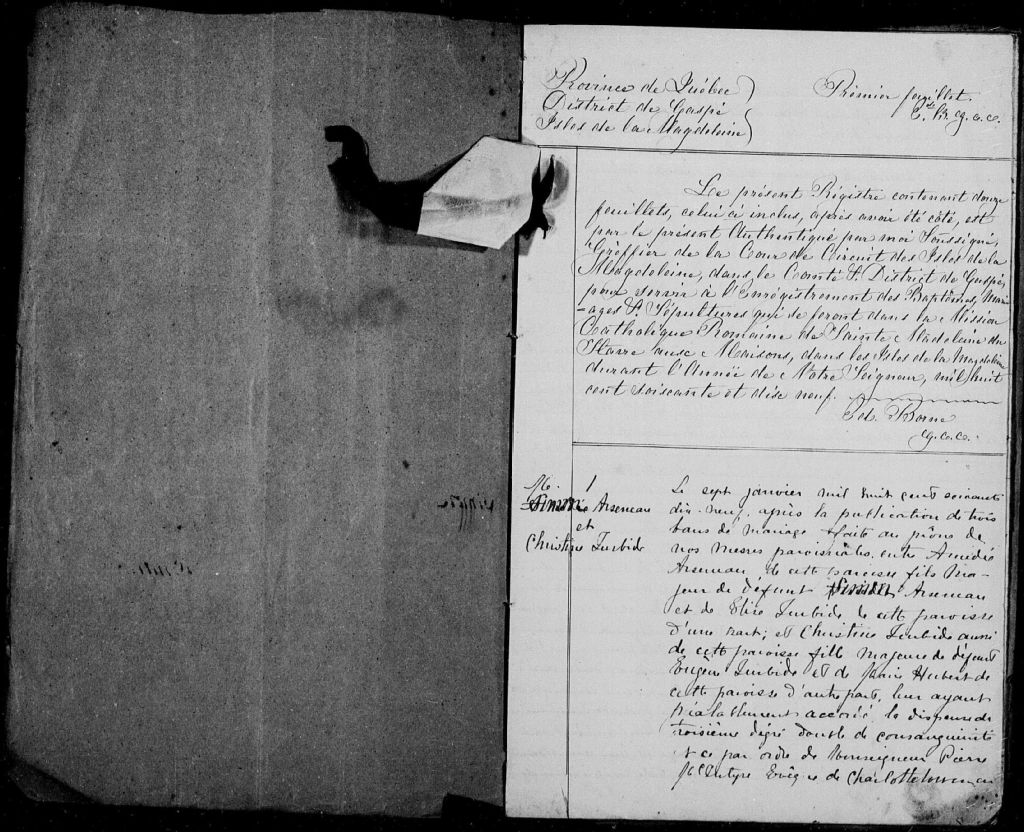 Province de Québec
District de Gaspé
Isles de la Magdeleine
Prémier feuillet.
Le présent Régistre contenant douze
feuillets, celui ci inclus, après avoir été côté, est
par le présent Authentiqué par moi Soussigné,
Gréffier de la Cour de Circuit des Isles de la
Magdeleine, dans le Comté & District de Gaspé,
pour servir à l'Enrégistrement des Baptêmes, Mari
-ages & Sépultures qui se feront dans la Mission
Catholique Romaine de Sainte Madeleine du
Havre aux Maisons, dans les Isles de la Magdeleine
durant l'Année de Notre Seigneur, mil huit
cent soixante et dix neuf.
Ed. Borne
g.c.c.
M. 1
Arseneau
et
Christine Turbide
Le sept janvier mil huit cent soixante
dix-neuf, après la publication de trois
bans de mariage faite au prône de
nos messes paroissiales, entre Amédé
Arseneau, de cette paroisse fils Ma-
jeur de défunt Arseneau
et de Elise Turbide de cette paroisse
d'une part; et Christine Turbide aussi
de cette paroisse fille majeure de défunt
Eugène Turbide et de Marie Hubert de
cette paroisse d'autre part, leur ayant
préalablement accordé la dispense du
troisième dégré double de consanguinité
& ce par ordre de Monseigneur Pierre
McIntyre Evêque de Charlottetown